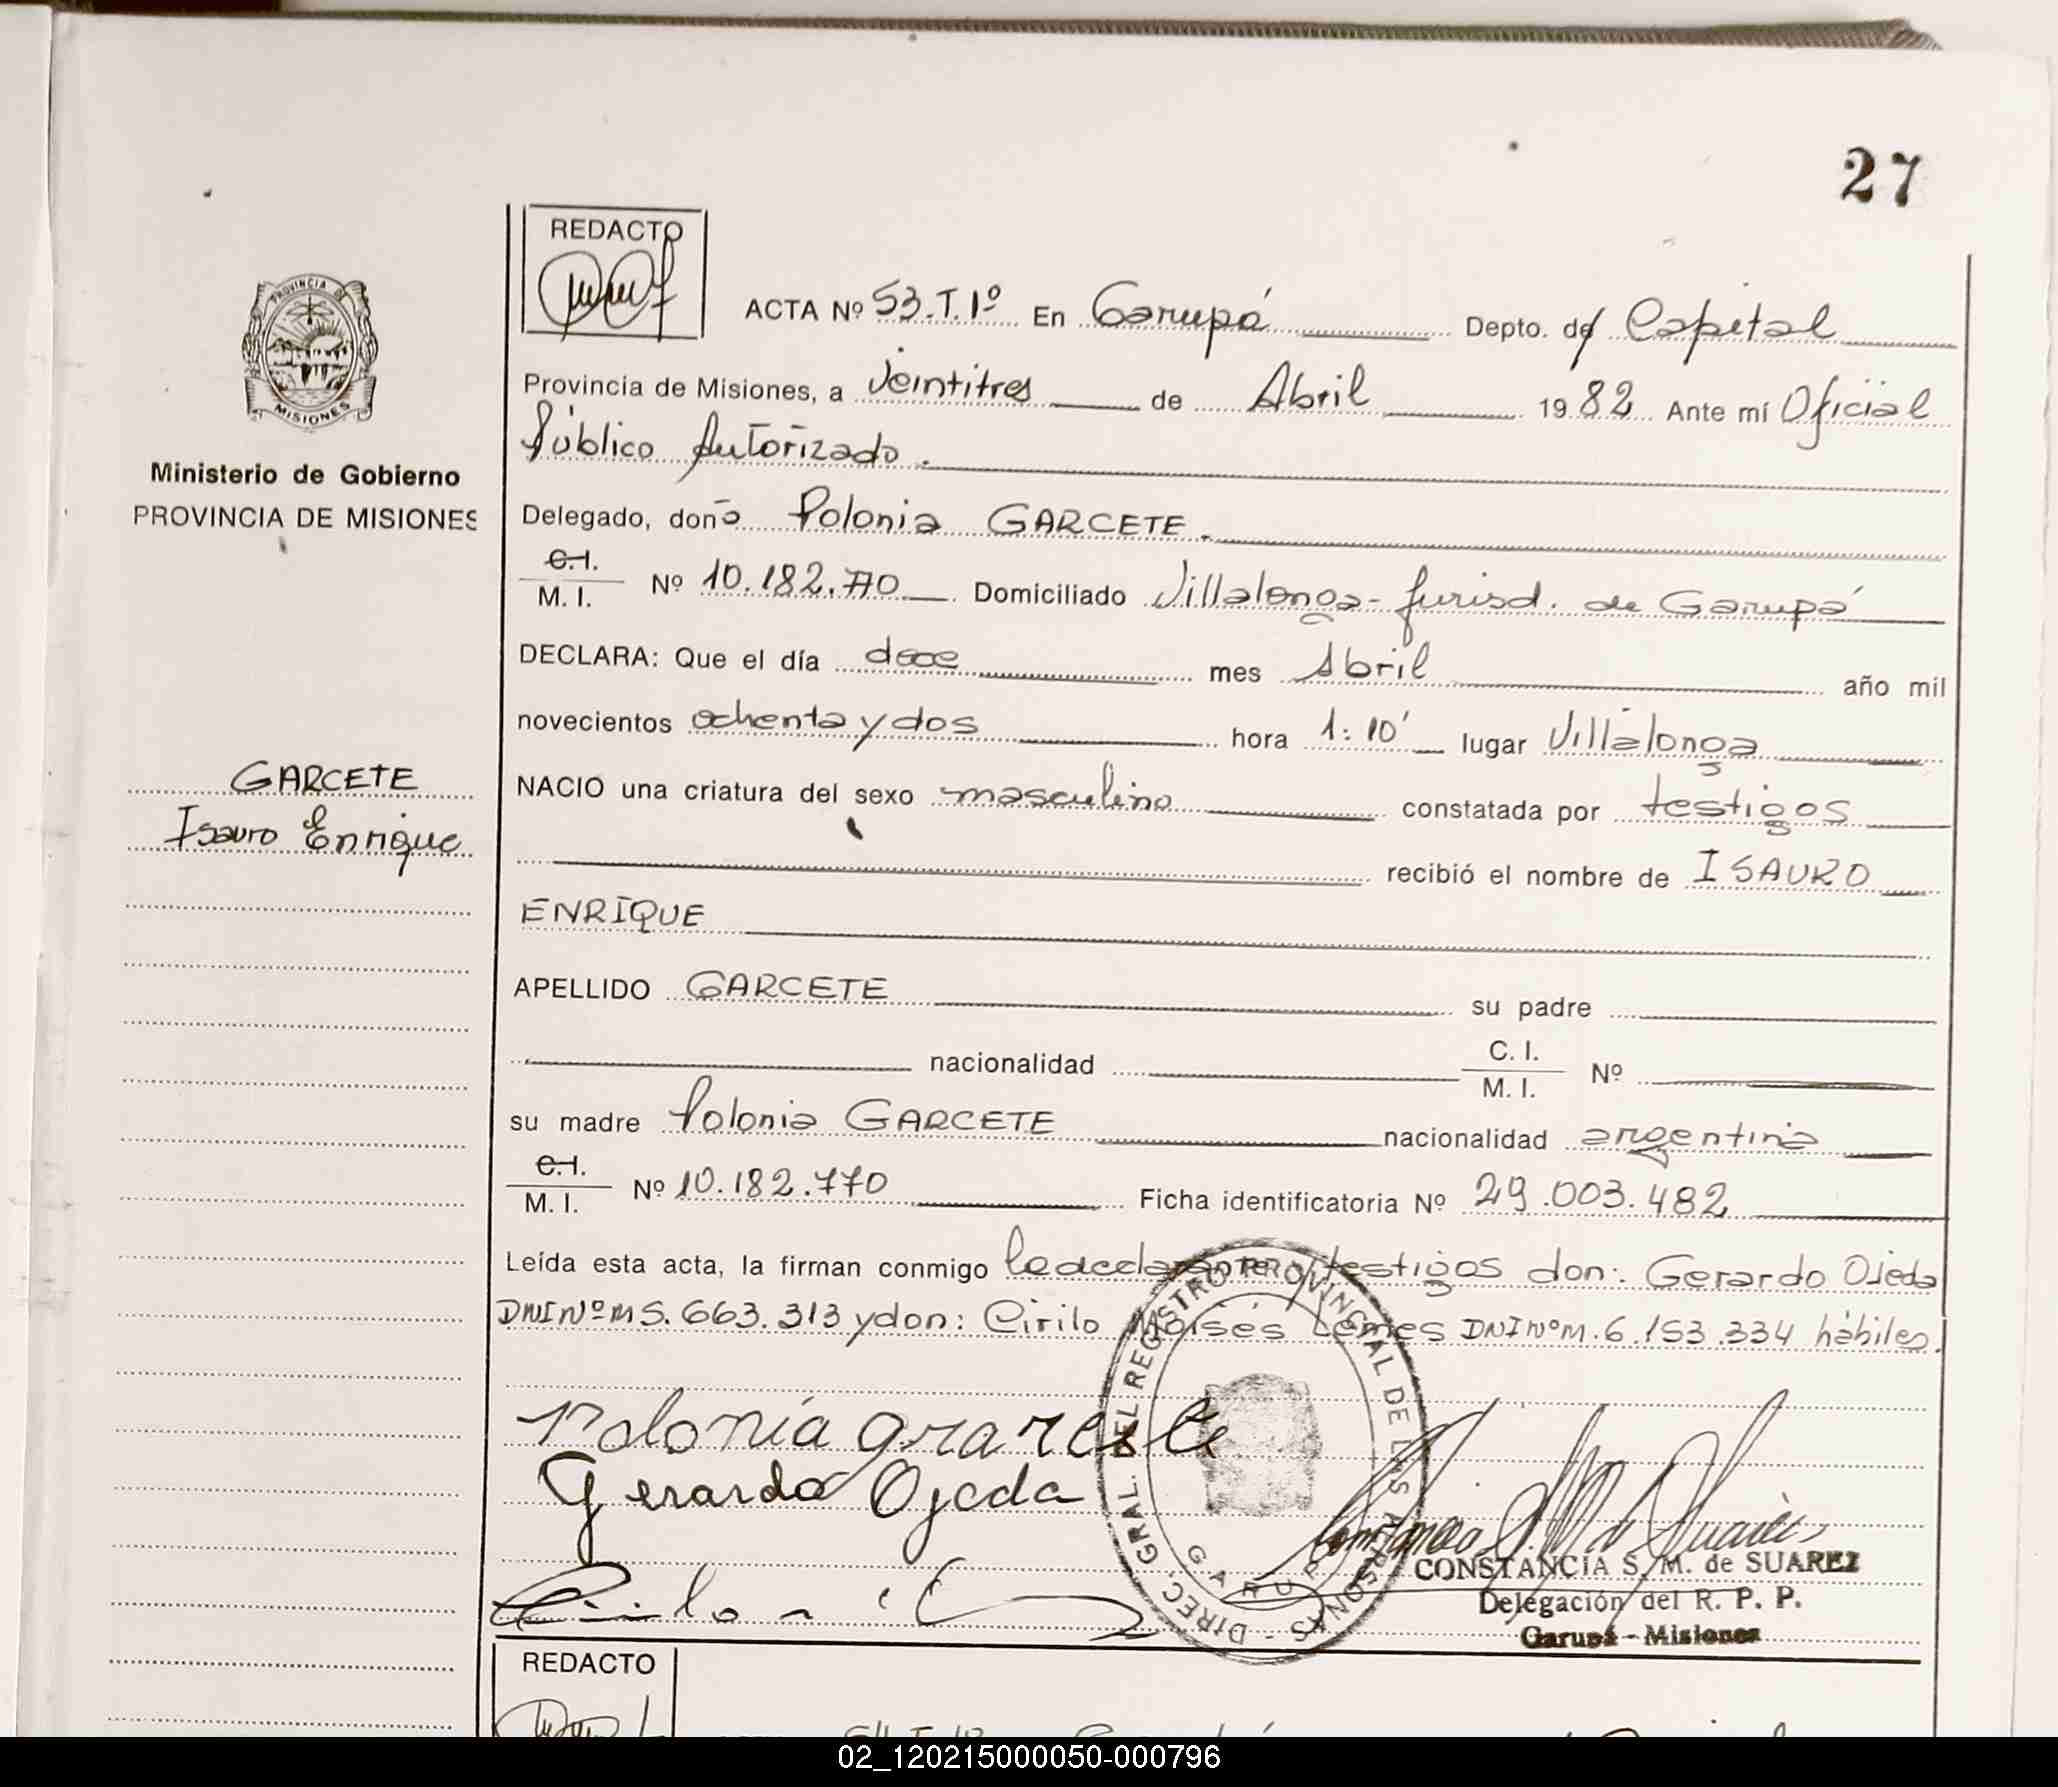 27
REDACTO
ACTA Nº 53.T.1º En Garupá Depto. de Capital
Provincia de Misiones, a veintitres de Abril 1982 Ante mí Oficial
Público Autorizado.
PROVINCIA DE
MISIONES
Ministerio de Gobierno
PROVINCIA DE MISIONES
Delegado, doña Polonia GARCETE.
C.I.
M. I. Nº 10.182.770 Domiciliado Villalonga - Jurisd. de Garupá
DECLARA: Que el día doce mes Abril año mil
novecientos ochenta y dos hora 1:10' lugar Villalonga
GARCETE
Isauro Enrique
NACIO una criatura del sexo masculino constatada por testigos
recibió el nombre de ISAURO
ENRIQUE
APELLIDO GARCETE su padre
nacionalidad C. I.
M. I. Nº
su madre Polonia GARCETE nacionalidad argentina
C.I.
M. I. Nº 10.182.770 Ficha identificatoria Nº 29.003.482
Leída esta acta, la firman conmigo testigos don: Gerardo Ojeda
DNI Nº M 5.663.313 y don: Cirilo Moisés Lemes DNI Nº M. 6.153.334 hábiles.
DIREC. GRAL. DEL REGISTRO PROVINCIAL DE LAS PERSONAS -
GARUPA
Polonia
Gerardo Ojeda
CONSTANCIA S. M. de SUAREZ
Delegación del R. P. P.
Garupá - Misiones
REDACTO
02_120215000050-000796